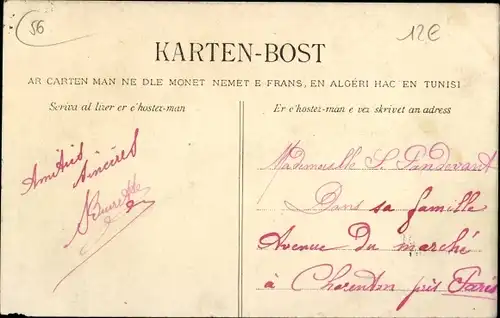 56
12€
KARTEN-BOST
AR CARTEN MAN NE DLE MONET NEMET E FRANS, EN ALGÉRI HAC EN TUNISI
Scriva al lizer er c'hostez-man
Er c'hostez-man e vez skrivet an adress
Amitiés
sincères
Mademoiselle S. Pandevant
Dans sa famille
Avenue du marché
à Charenton près Paris